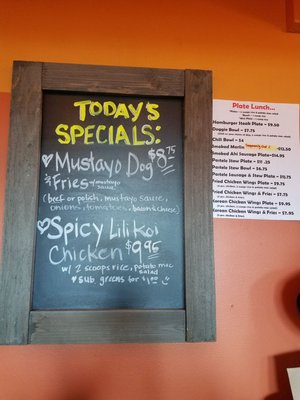 TODAY'S
SPECIALS:
Mustayo Dog $8.75
& Fries w/ mustayo sauce
(beef or polish, mustayo sauce,
onions, tomatoes, bacon & cheese)
Spicy Lilikoi
Chicken $9.95
w/ 2 scoops rice, potato mac
salad
sub greens for $1.00
Plate Lunch...
Hamburger Steak Plate - $9.50
Doggie Bowl - $7.75
Chili Bowl -
Smoked Marlin $13.50
Smoked Ahi Sausage Plate - $14.95
Portuguese Stew Plate -
Stew Bowl - $6.75
Sausage & Stew Plate - $11.75
Fried Chicken Wings Plate - $9.75
Fried Chicken Wings & Fries - $7.95
Korean Chicken Wings Plate - $9.75
Korean Chicken Wings & Fries - $7.95